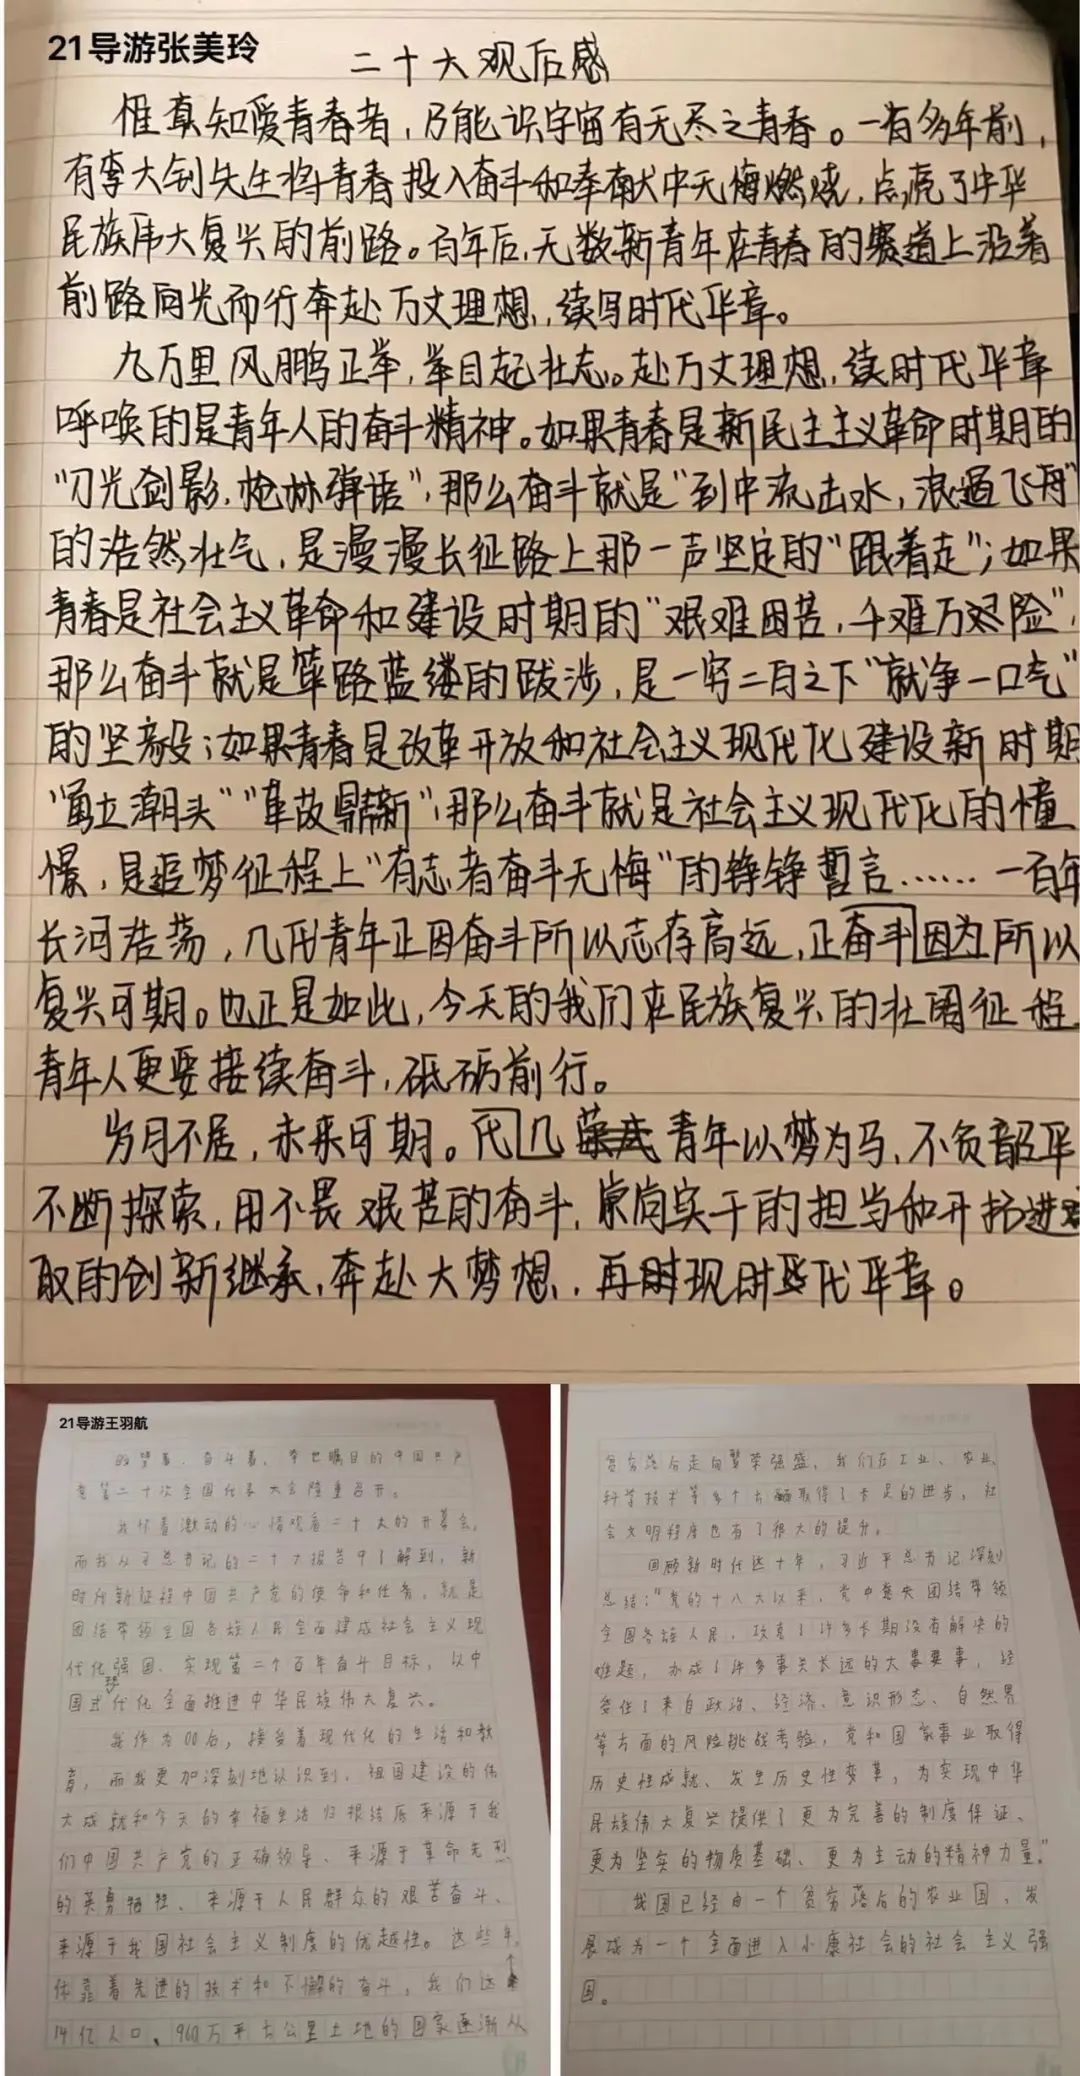 21导游张美玲
二十大观后感
惟真知爱青春者，乃能识宇宙有无尽之青春。一百多年前，
有李大钊先生将青春投入奋斗和奉献中无悔燃烧，点亮了中华
民族伟大复兴的前路。百年后，无数新青年在青春的赛道上沿着
前路向光而行奔赴万丈理想，续写时代华章。
九万里风鹏正举，举目起壮志。赴万丈理想，续时代华章
呼唤的是青年人的奋斗精神。如果青春是新民主主义革命时期的
“刀光剑影，枪林弹语”，那么奋斗就是“到中流击水，浪遏飞舟”
的浩然壮气，是漫漫长征路上那一声坚定的“跟着走”；如果
青春是社会主义革命和建设时期的“艰难困苦，千难万险”，
那么奋斗就是筚路蓝缕的跋涉，是一穷二白之下“就争一口气”
的坚毅；如果青春是改革开放和社会主义现代化建设新时期
“勇立潮头”“革故鼎新”，那么奋斗就是社会主义现代化的憧
憬，是追梦征程上“有志者奋斗无悔”的铮铮誓言……一百年
长河浩荡，几代青年正因奋斗所以志存高远，正奋斗因为所以
复兴可期。也正是如此，今天的我们在民族复兴的壮阔征程
青年人更要接续奋斗，砥砺前行。
岁月不居，未来可期。代几青年以梦为马，不负韶华
不断探索，用不畏艰苦的奋斗，崇尚实干的担当和开拓进
取的创新继承，奔赴大梦想，再现时代华章。
21导游王羽航
盼望着，奋斗着，举世瞩目的中国共产
党第二十次全国代表大会隆重召开。
我怀着激动的心情观看二十大的开幕会，
而我从习总书记的二十大报告中了解到，新
时代新征程中国共产党的使命和任务，就是
团结带领全国各族人民全面建成社会主义现
代化强国、实现第二个百年奋斗目标，以中
国式现代化全面推进中华民族伟大复兴。
我作为00后，接受着现代化的生活和教
育，而我更加深刻地认识到，祖国建设的伟
大成就和今天的幸福生活归根结底来源于我
们中国共产党的正确领导、来源于革命先烈
的英勇牺牲、来源于人民群众的艰苦奋斗、
来源于我国社会主义制度的优越性。这些年，
依靠着先进的技术和不懈的奋斗，我们这个
14亿人口、960万平方公里土地的国家逐渐从
贫穷落后走向繁荣强盛，我们在工业、农业、
科学技术等多个方面取得了长足的进步，社
会文明程度也有了很大的提升。
回顾新时代这十年，习近平总书记深刻
总结：“党的十八大以来，党中央团结带领
全国各族人民，攻克了许多长期没有解决的
难题，办成了许多事关长远的大事要事，经
受住了来自政治、经济、意识形态、自然界
等方面的风险挑战考验，党和国家事业取得
历史性成就、发生历史性变革，为实现中华
民族伟大复兴提供了更为完善的制度保证、
更为坚实的物质基础、更为主动的精神力量。”
我国已经由一个贫穷落后的农业国，发
展成为一个全面进入小康社会的社会主义强
国。